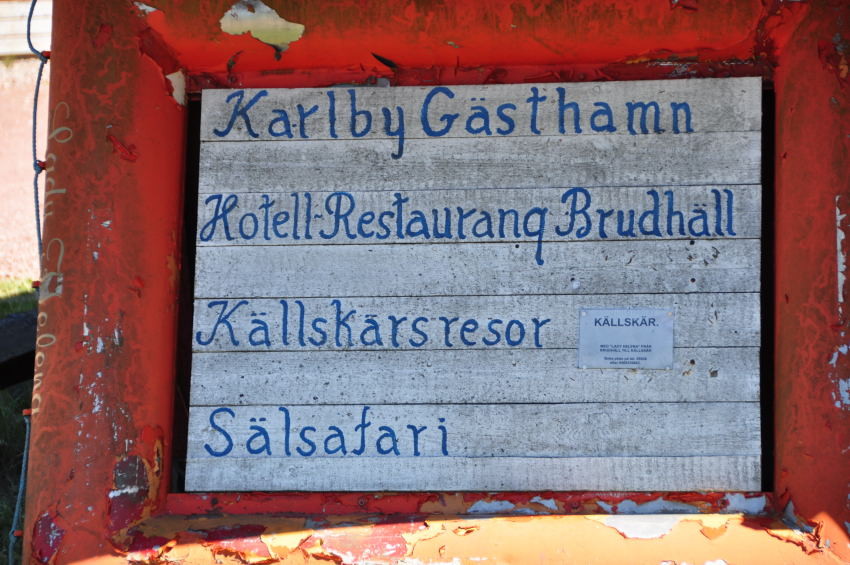 Karlby Gästhamn
Hotell-Restaurang Brudhäll
Källskärsresor
KÄLLSKÄR.
MED "LADY HELENA" FRÅN
BRUDHÄLL TILL KÄLLSKÄR
Sälsafari